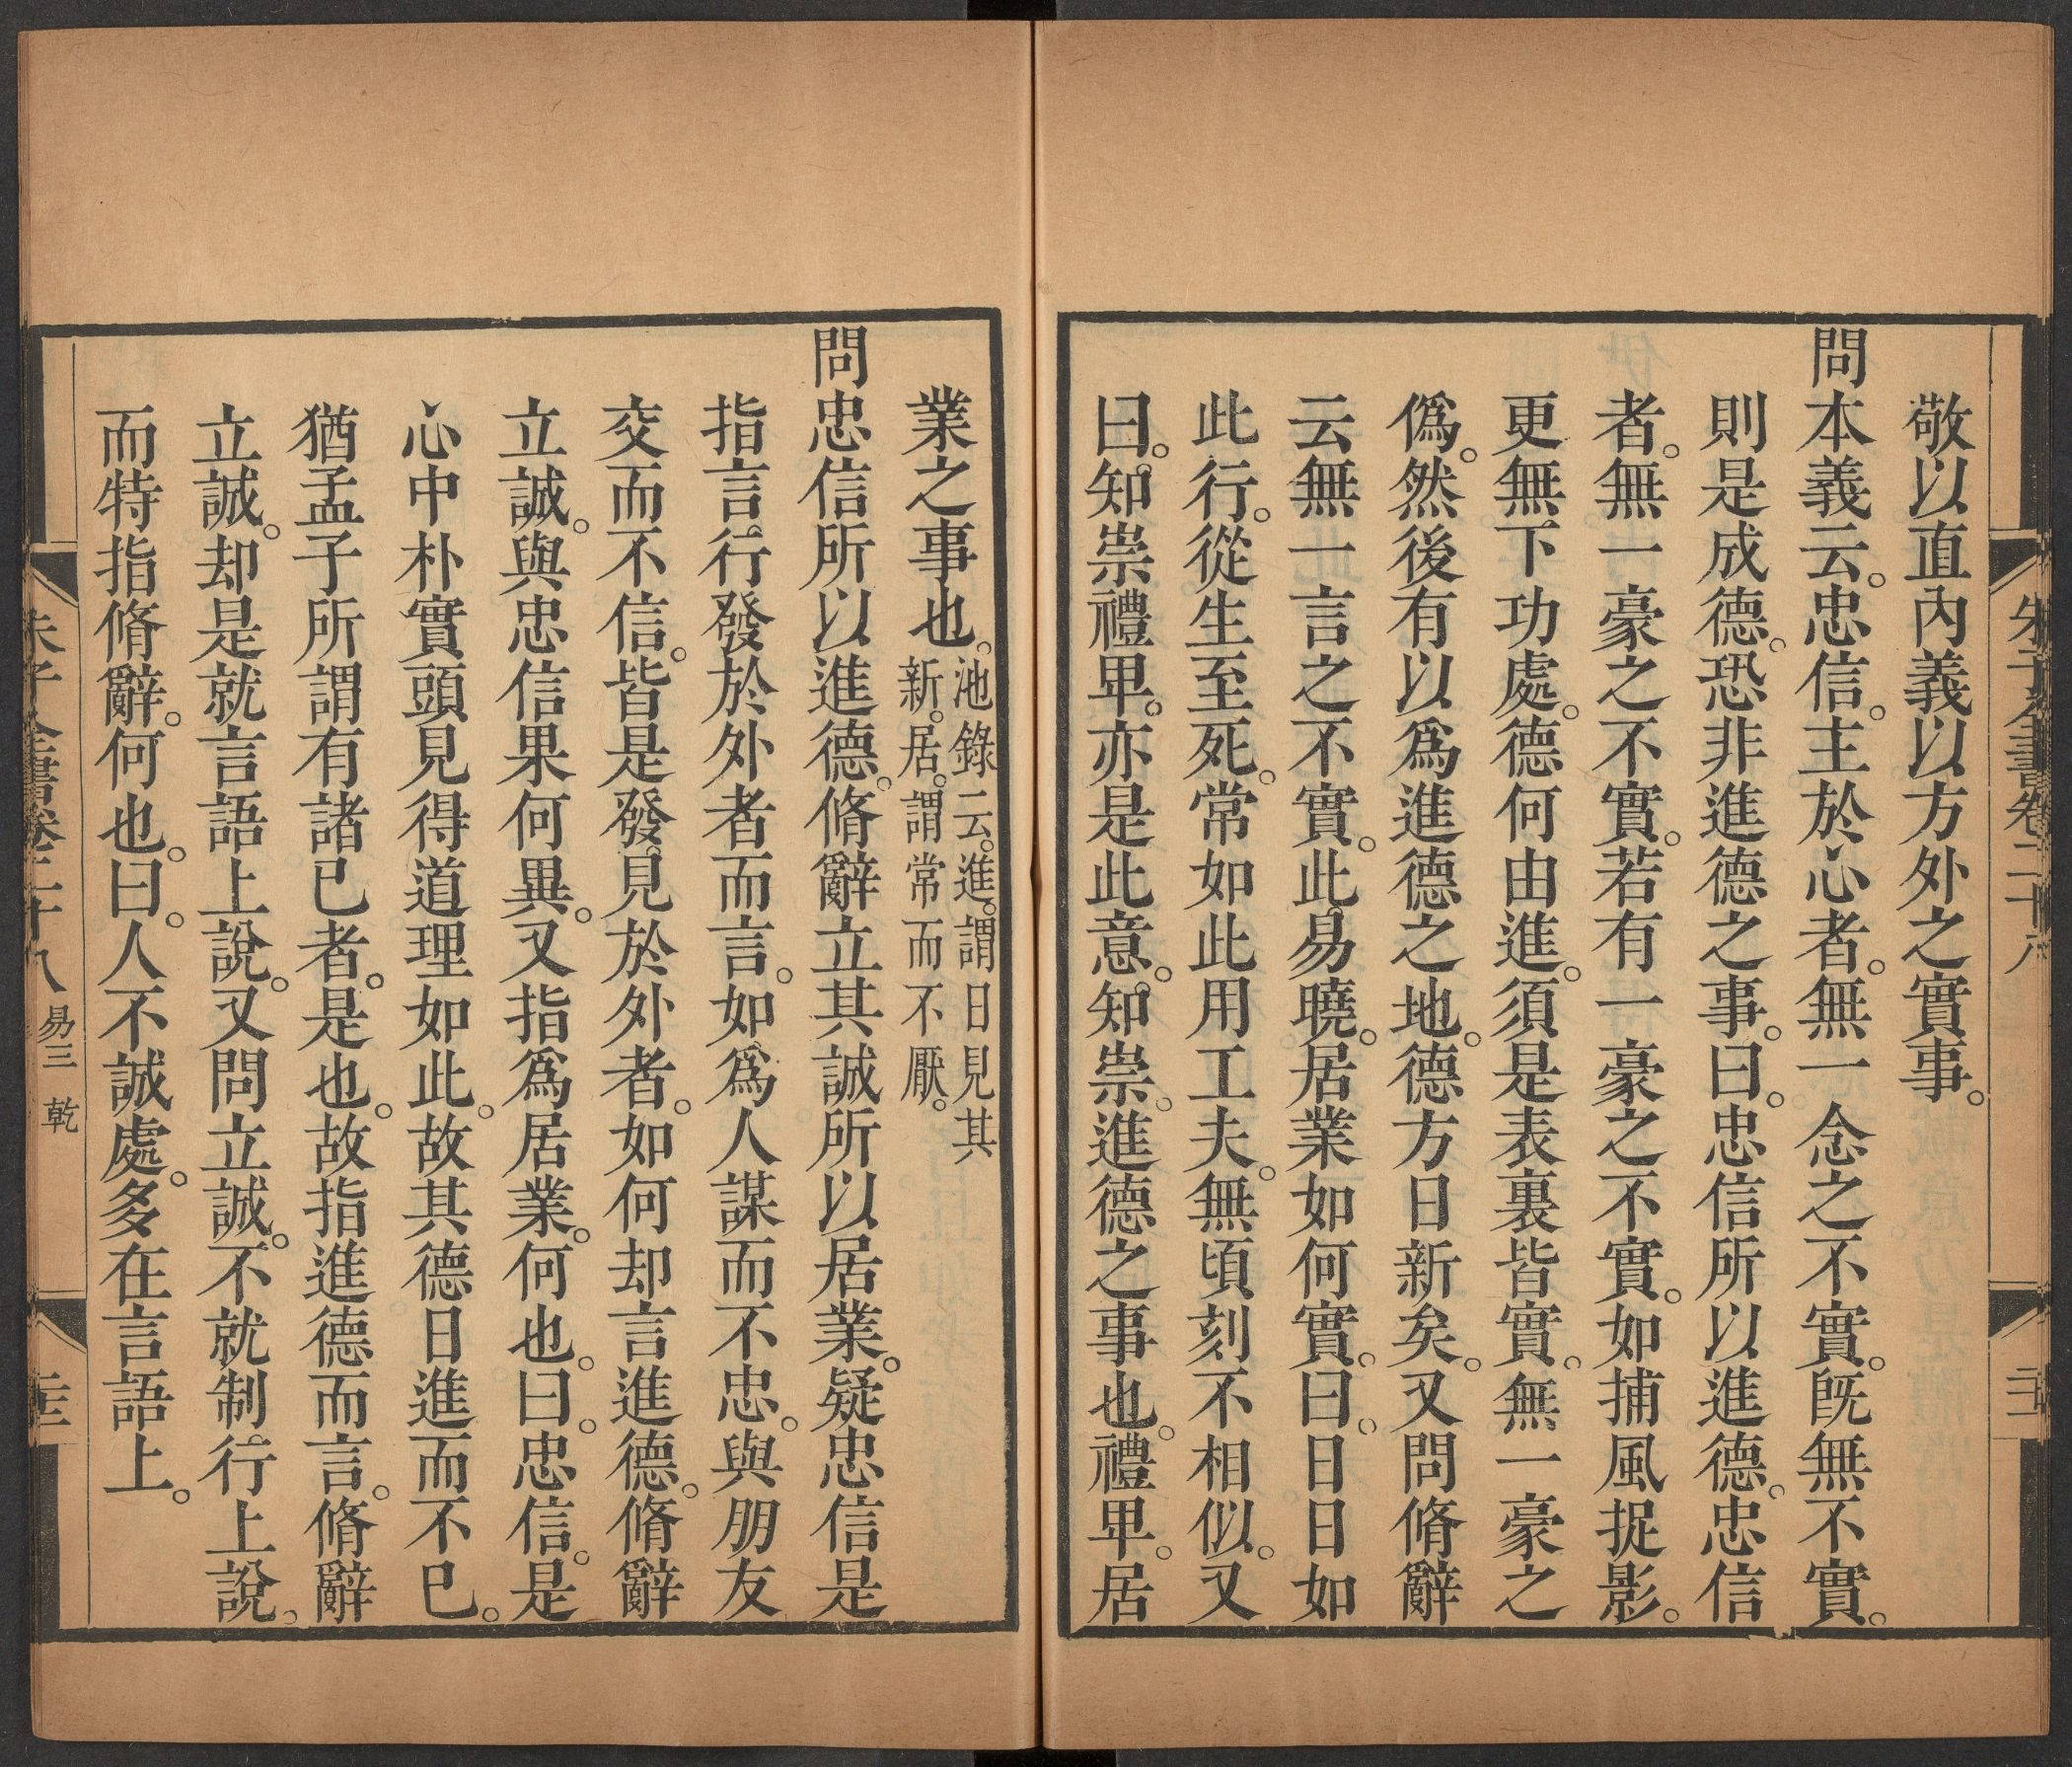 朱子全書卷二十八
敬以直內義以方外之實事。
問本義云。忠信。主於心者。無一念之不實。旣無不實。
則是成德。恐非進德之事。曰。忠信所以進德。忠信
者。無一豪之不實。若有一豪之不實。如捕風捉影。
更無下功處。德何由進。須是表裏皆實。無一豪之
僞。然後有以爲進德之地。德方日新矣。又問脩辭
云無一言之不實。此易曉。居業如何實。曰。日日如
此行。從生至死。常如此用工夫。無頃刻不相似。又
曰。知崇禮卑。亦是此意。知崇。進德之事也。禮卑。居
業之事也。池錄云。進。謂日見其
新。居。謂常而不厭。
問忠信所以進德。脩辭立其誠所以居業。疑忠信是
指言行發於外者而言。如爲人謀而不忠。與朋友
交而不信。皆是發見於外者。如何却言進德。脩辭
立誠。與忠信果何異。又指爲居業。何也。曰。忠信。是
心中朴實頭見得道理如此。故其德日進而不已。
猶孟子所謂有諸已者。是也。故指進德而言。脩辭
立誠。却是就言語上說。又問立誠。不就制行上說。
而特指脩辭。何也。曰。人不誠處。多在言語上。
朱子全書卷二十八 易三 乾